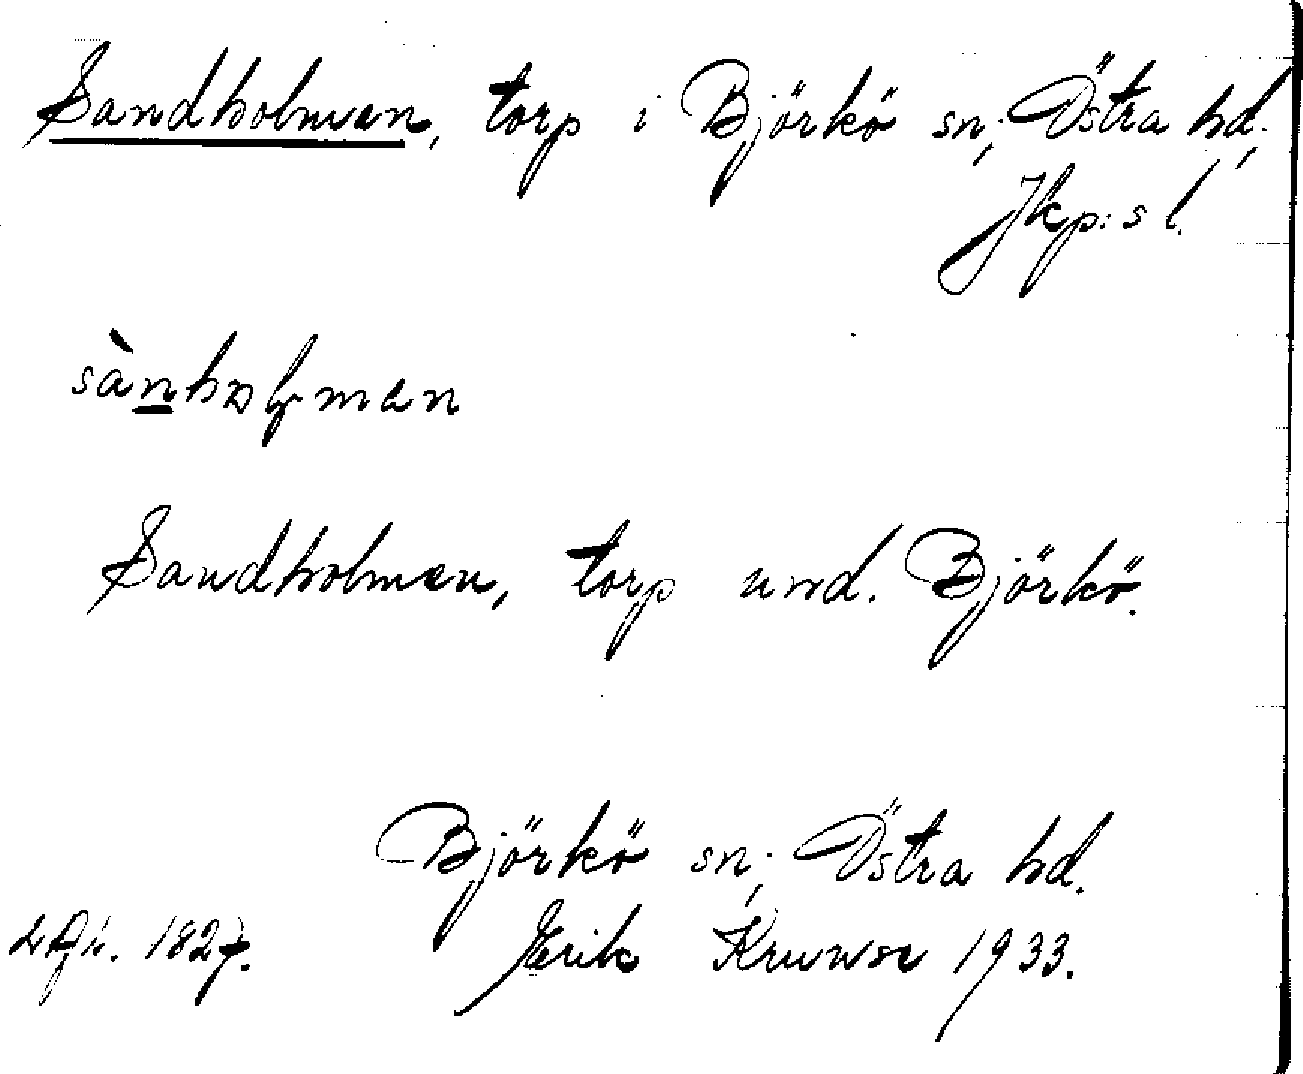 Sandholmen, torp i Björkö sn., Östra hd.,
Jkp:s l.
Sandholmen, torp und. Björkö.
Björkö sn., Östra hd.
1827. Erik Kruuse 1933.